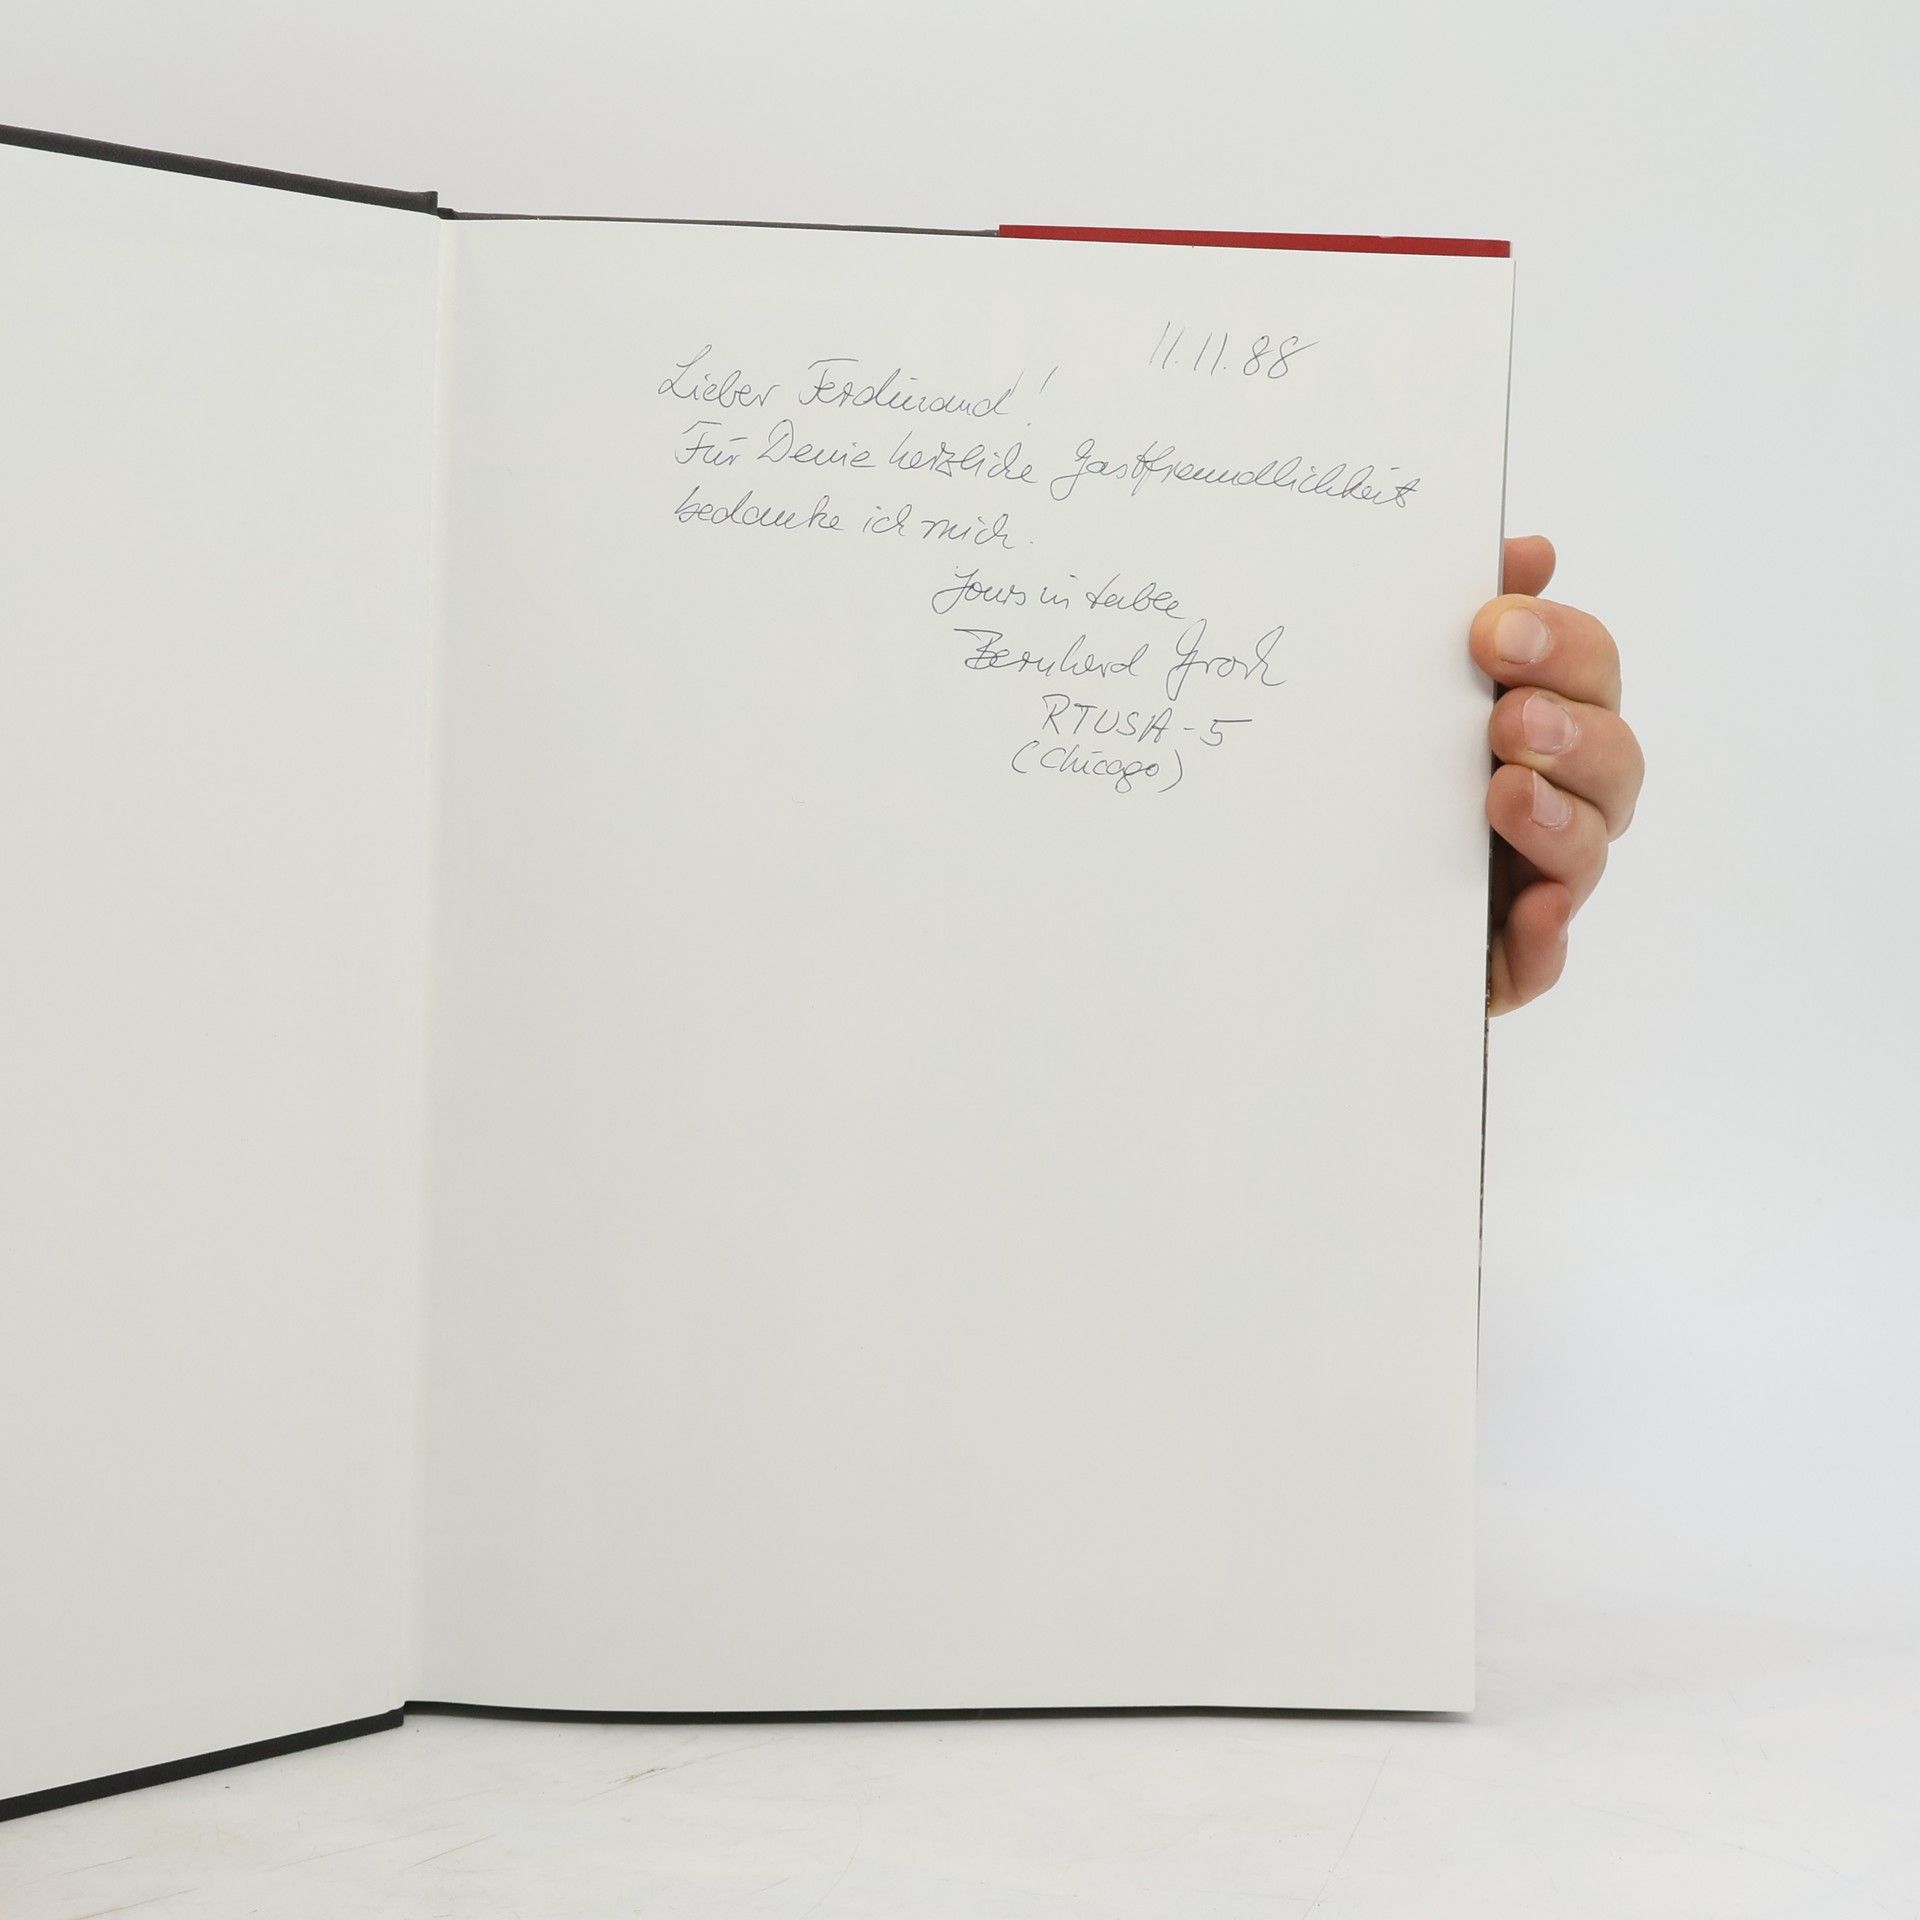 11.11.88
Lieber Ferdinand!
Für Deine herzliche Gastfreundlichkeit
bedanke ich mich.
Yours in table
Bernhard
RTUSA-5
(Chicago)